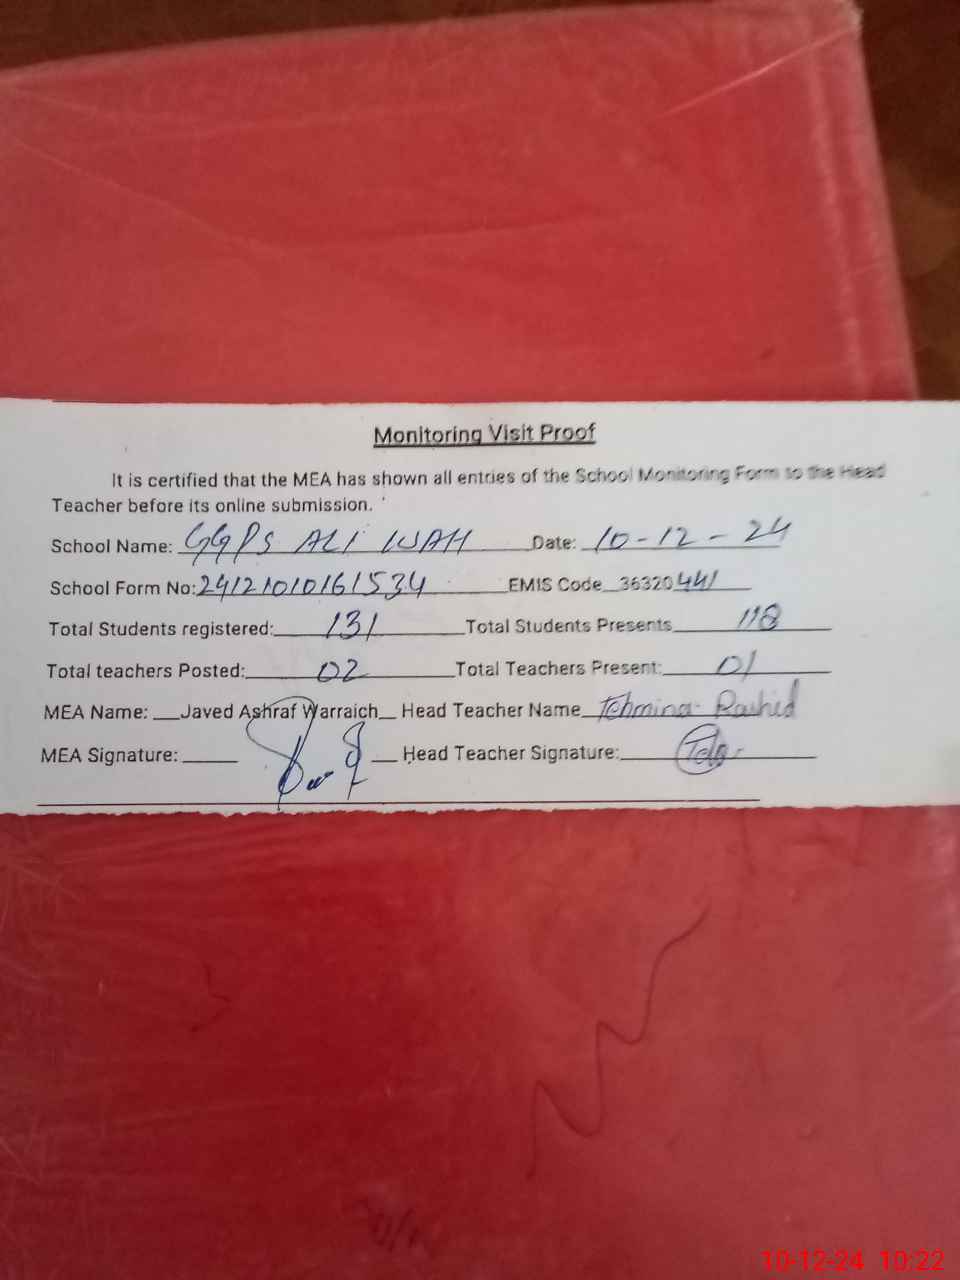 Monitoring Visit Proof
It is certified that the MEA has shown all entries of the School Monitoring Form to the Head
Teacher before its online submission.
School Name: GGPS ALI WAH Date: 10-12-24
School Form No: 24121010161534 EMIS Code 36320441
Total Students registered: 131 Total Students Presents 118
Total teachers Posted: 02 Total Teachers Present: 01
MEA Name: Javed Ashraf Warraich Head Teacher Name Tehmina Rashid
MEA Signature: Head Teacher Signature:
10-12-24 10:22